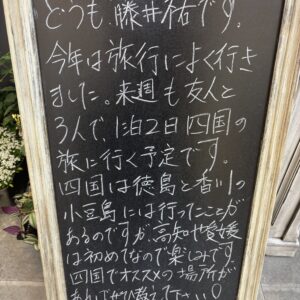 どうも、藤井祐です。
今年は旅行によく行き
ました。来週も友人と
3人で1泊2日四国の
旅に行く予定です。
四国は徳島と香川の
小豆島には行ったことが
あるのですが、高知や愛媛
は初めてなので楽しみです
四国でオススメの場所が
あれば教えて下さい。